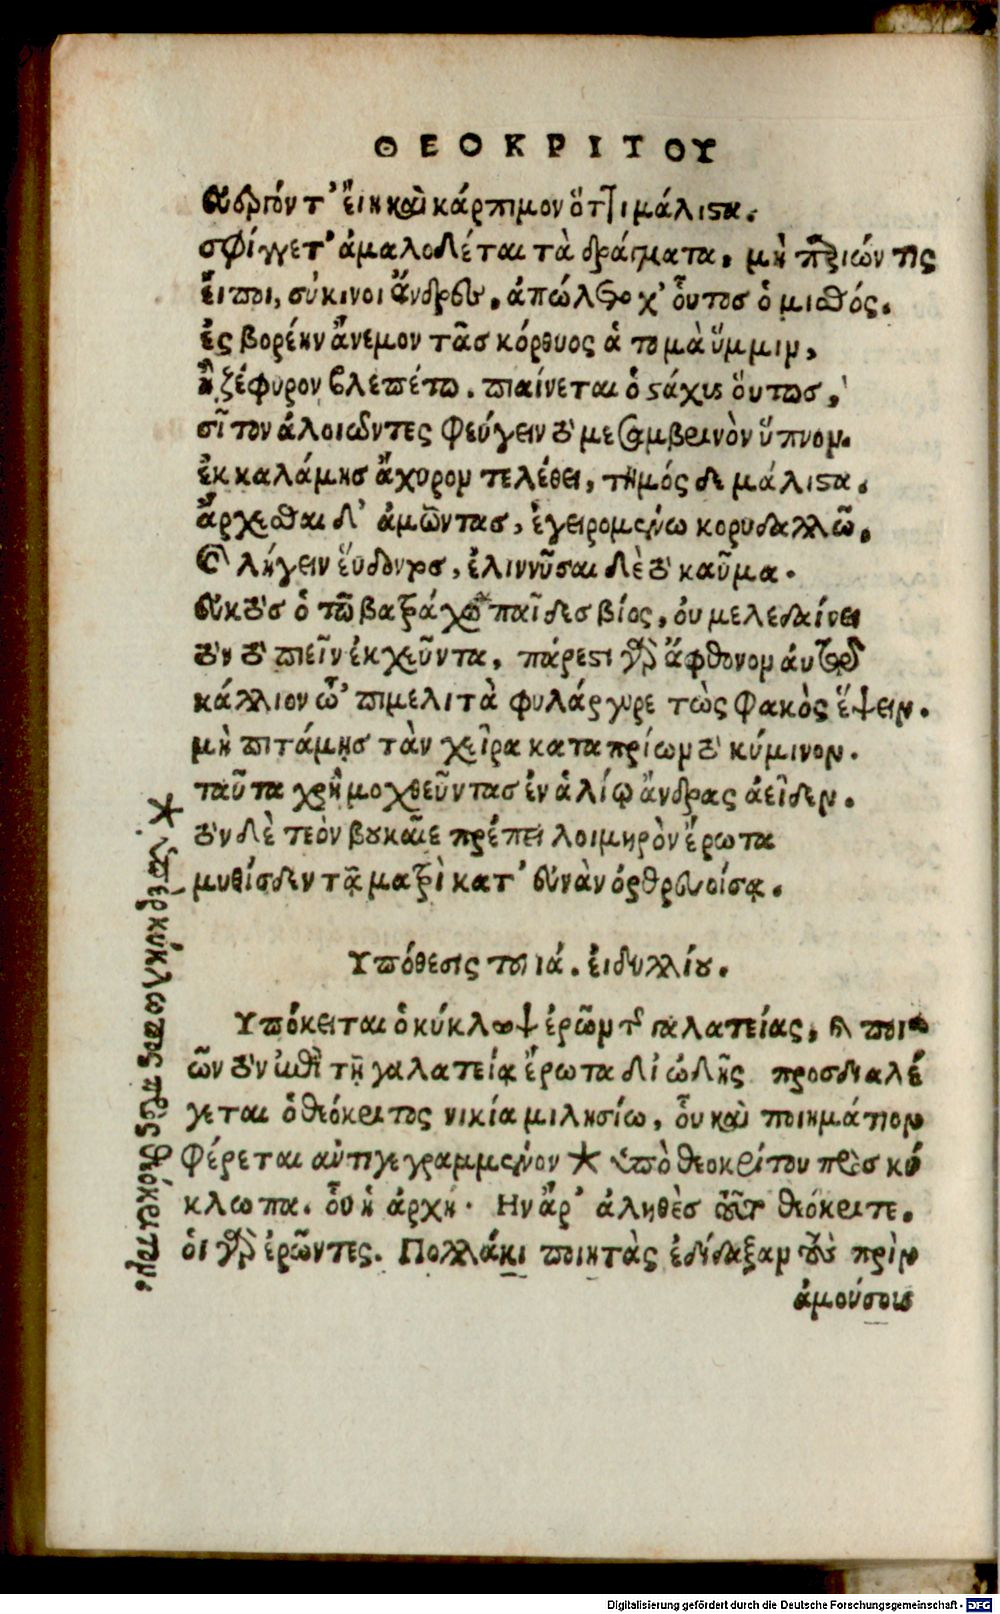 ΘΕΟΚΡΙΤΟΥ
εὔεργόν τ' εἴη καὶ κάρπιμον ὅττι μάλιστα.
σφίγγετ' ἀμαλοδέται τὰ δράγματα, μὴ παριών τις
εἴποι, σύκινοι ἄνδρες, ἀπώλετο χ' οὗτος ὁ μισθός.
ἐς βορέην ἄνεμον τᾶς κόρθυος ἁ τομὰ ὔμμιν,
ἢ ζέφυρον βλεπέτω. πιαίνεται ὁ στάχυς οὕτως,
σῖτον ἀλοιῶντες φεύγειν τὸ μεσαμβρινὸν ὕπνον.
ἐκ καλάμης ἄχυρον τελέθει, τημός δε μάλιστα.
ἄρχεσθαι δ' ἀμῶντας, ἐγειρομένω κορυδαλλῶ,
καὶ λήγειν εὕδοντος, ἐλιννῦσαι δὲ τὸ καῦμα.
εὐκτὸς ὁ τῶ βατράχω παῖδες βίος, οὐ μελεδαίνει
τὸν τὸ πιεῖν ἐκχεῦντα, πάρεστι γὰρ ἄφθονον αὐτῷ
κάλλιον ὦ' πιμελιτὰ φυλάργυρε τὼς φακὸς ἕψειν.
μὴ πιτάμης τὰν χεῖρα καταπρίων τὸ κύμινον.
ταῦτα χρὴ μοχθεῦντας ἐν ἁλίῳ ἄνδρας ἀείδεν.
τὸν δὲ τεὸν βουκαῖε πρέπει λοιμηρὸν ἔρωτα
μυθίσδεν τᾷ ματρὶ κατ' εὐνὰν ὀρθρευοίσᾳ.
Υπόθεσις τοῦ ιά. εἰδυλλίου.
Υπόκειται ὁ κύκλωψ ἐρῶν τῆς γαλατείας, καὶ ποι
ῶν τὸν ἐπὶ τῇ γαλατείᾳ ἔρωτα δἰ ὠδῆς προσδιαλέ
γεται ὁ θεόκριτος νικία μιλησίω, οὗ καὶ ποιημάτιον
φέρεται ἀντιγεγραμμένον * ὑπὸ θεοκρίτου πρὸς κύ
κλωπα. οὗ ἡ ἀρχή. Ην ἄρ' ἀληθὲς τοῦτο θεόκριτε.
οἱ γὰρ ἐρῶντες. Πολλάκι ποιητὰς ἐδίδαξαν τοὺς πρὶν
ἀμούσους
* ὑπὲρ κύκλωπος πρὸς θεόκριτον.
Digitalisierung gefördert durch die Deutsche Forschungsgemeinschaft - DFG